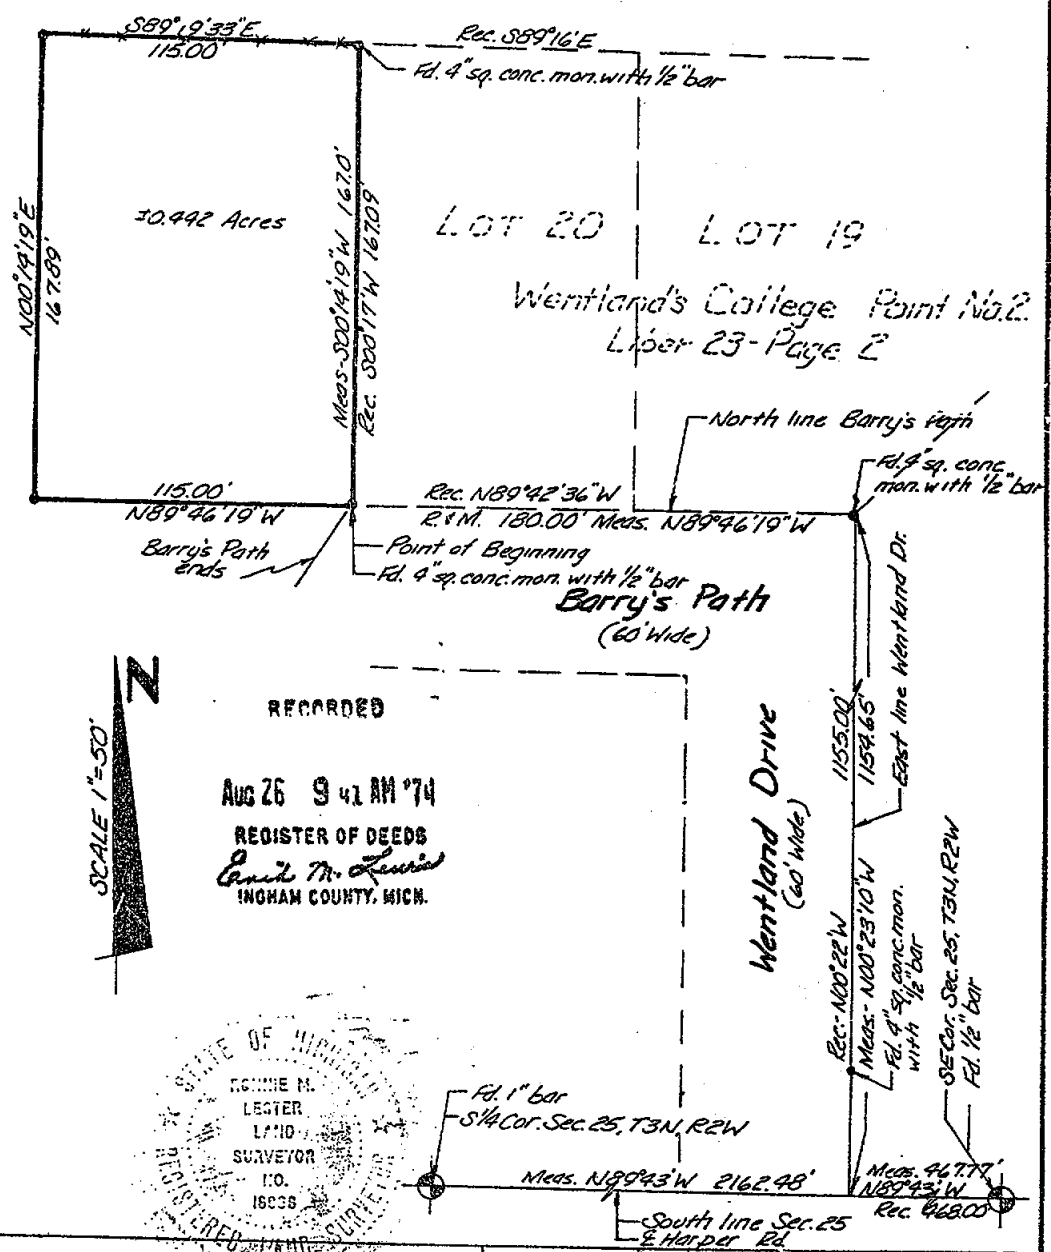 S89°19'33"E
115.00'
Rec. S89°16'E
Fd. 4" sq. conc. mon. with 1/2" bar
N00°14'19"E
167.89'
±0.442 Acres
Meas.-S00°14'19"W 167.0'
Rec. S00°17'W 167.09'
LOT 20
LOT 19
Wentland's College Point No.2.
Liber 23-Page 2
North line Barry's Path
Fd. 4" sq. conc.
mon. with 1/2" bar
115.00'
N89°46'19"W
Rec. N89°42'36"W
R&M. 180.00' Meas. N89°46'19"W
Barry's Path
ends
Point of Beginning
Fd. 4" sq. conc. mon. with 1/2" bar
Barry's Path
(60' Wide)
N
SCALE 1"=50'
RECORDED
AUG 26 9 41 AM '74
REGISTER OF DEEDS
INGHAM COUNTY, MICH.
Wentland Drive
(60' Wide)
1155.00'
1154.65'
East line Wentland Dr.
Rec.- N00°22'W
Meas.- N00°23'10"W
Fd. 4" sq. conc. mon.
with 1/2" bar
SE Cor. Sec. 25, T3N, R2W
Fd. 1/2" bar
STATE OF MICHIGAN
LESTER
LAND
SURVEYOR
NO.
REGISTERED LAND SURVEYOR
Fd. 1" bar
S1/4 Cor. Sec. 25, T3N, R2W
Meas. N89°43'W 2162.48'
Meas. 467.77'
N89°43'W
Rec. 468.00'
South line Sec. 25
℄ Harper Rd.